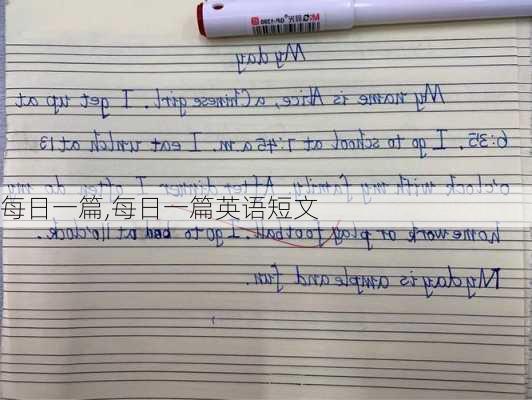 M&G 晨光
My day
My name is Alice, a Chinese girl. I get up at
6:35. I go to school at 7:45 a.m. I eat lunch at
o'clock with my family. After dinner I often do my
每日一篇,每日一篇英语短文
homework or play football. I go to bed at 11 o'clock.
My day is ample and fun.